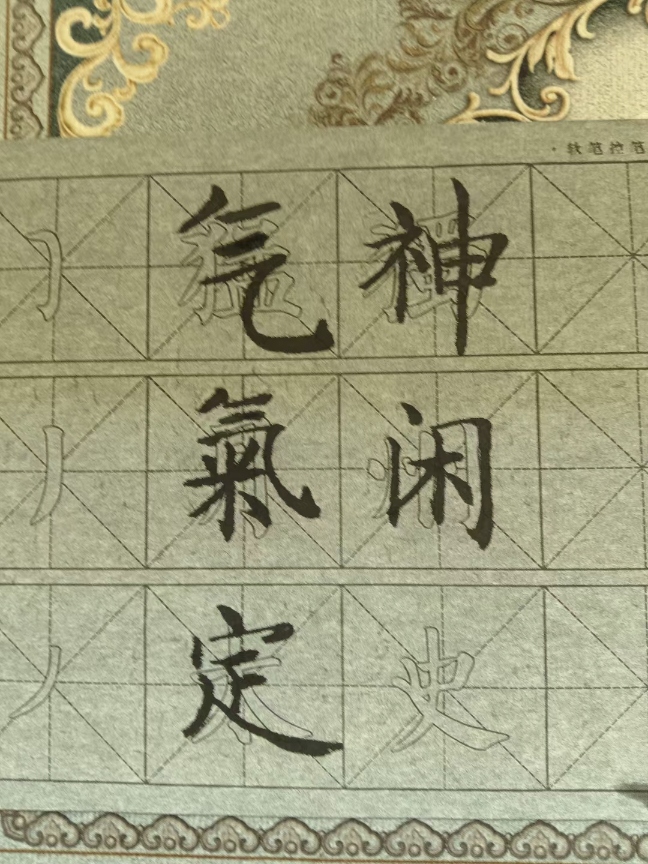 ·软笔控笔
神闲史
气氣定